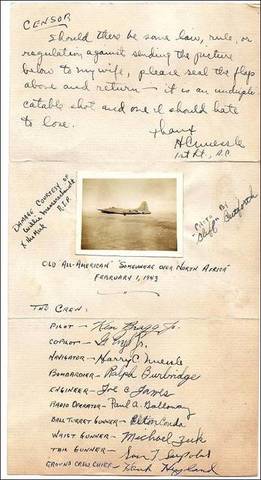 CENSOR
Should there be some law, rule, or
regulation against sending the picture
below to my wife, please seal the flap
above and return — it is an undupli-
catable shot and one I should hate
to lose.
Thanx
HCNuessle
1st Lt., A.C.
DAMAGE COURTESY OF
R.I.P.
PHOTO TAKEN BY
Cliff Cutforth
OLD "ALL-AMERICAN" "SOMEWHERE OVER NORTH AFRICA"
FEBRUARY 1, 1943
THE CREW:
PILOT — Ken Bragg Jr.
COPILOT —
NAVIGATOR — Harry C Nuessle
BOMBARDIER — Ralph Burbridge
ENGINEER — Joe C James
RADIO OPERATOR — Paul A. Galloway
BALL TURRET GUNNER — Elton Conda
WAIST GUNNER — Michael Zuk
TAIL GUNNER — Sam T Sarpolus
GROUND CREW CHIEF — Hank Hyland